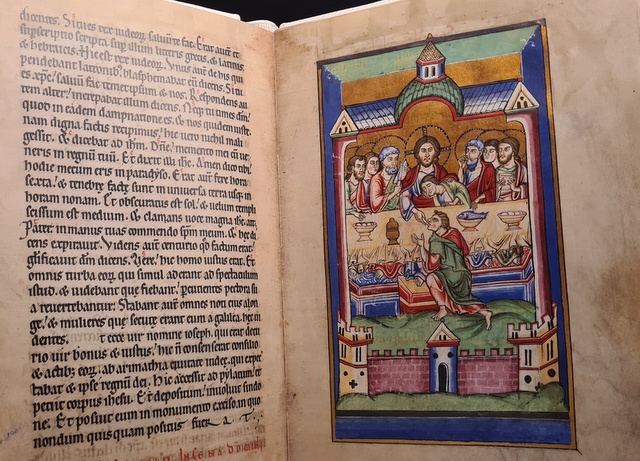 dicentes. Si tu es rex iudeoꝝ. saluū te fac. Erat aūt et
supscriptio scripta sup illum litteris grecis & latinis
& hebraicis. Hic est rex iudeoꝝ. Vnus aūt de his qui
pendebant latronib; blasphemabat eū dicens. Si tu
es xp̄c. saluū fac temetipsum & nos. Respondens aū
tem alter; increpabat illum dicens. Neq; tu times dm̄.
quod in eadem dampnatione es. & nos quidem iuste.
nam digna factis recipimus; hic uero nichil mali
gessit. & dicebat ad ihm. Dn̄e. memento mei cū ue
neris in regnū tuū. Et dixit illi ihc. Amen dico tibi.
hodie mecum eris in paradyso. Erat aūt fere hora
sexta. & tenebre facte sunt in uniuersa terra usq; in
horam nonam. Et obscuratus est sol. & uelum templi
scissum est medium. & clamans uoce magna ihc ait.
Pater. in manus tuas commendo spm̄ meum. & hec di
cens expirauit. Videns aūt centurio qd̄ factum erat;
glificauit dm̄ dicens. Vere. hic homo iustus erat. Et
omnis turba eoꝝ qui simul aderant ad spectaculum
istud. & uidebant que fiebant; percutientes pectora su
a reuertebantur. Stabant aūt omnes noti eius alon
ge. & mulieres que secute erant eum a galilea. hec ui
dentes. t ecce uir nomine ioseph. qui erat decu
rio uir bonus & iustus. hic n̄ consenserat consilio
& actib; eoꝝ. ab arimathia ciuitate iudee. qui expec
tabat & ipse regnū dei. Hic accessit ad pylatum. et
petiit corpus ihesu. Et depositum inuoluit sindo
ne. Et posuit eum in monumento exciso. in quo
nondum quisquam positus fuerat.